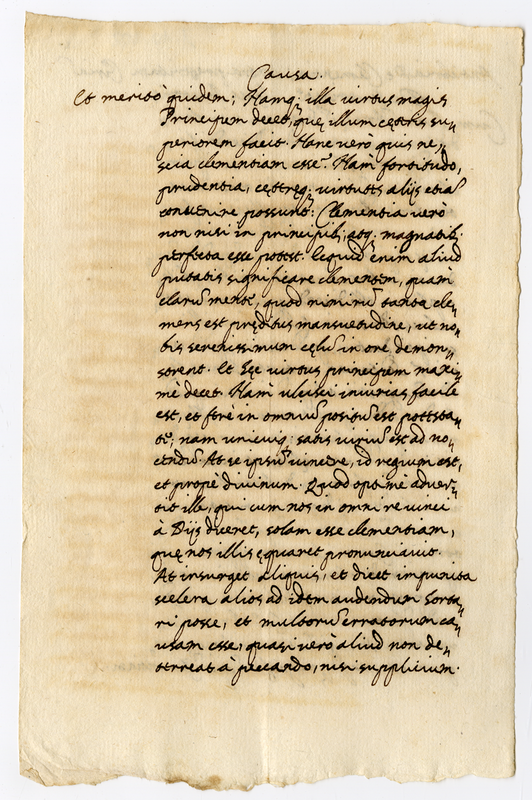 Causa.
Et meritò quidem; Namq; illa virtus magis
Principem decet, quę illum cęteris su„
periorem facit. Hanc verò quis ne„
scia clementiam esse? Nam fortitudo,
prudentia, cęteręq; virtutes alijs etiā
convenire possunt: Clementia verò
non nisi in principib; atq; magnatib;
perfecta esse potest. Ecquid enim aliud
putatis significare clementem, quàm
clarū mente, quod nimirū tanta cle„
mens est pręditus mansuetudine, ut no„
bis serenissimum cęlū in ore demon„
strent. Et hęc virtus principem maxi„
mè decet. Nam ulcisci iniurias facile
est, et ferè in omniū positū est potesta„
te, nam unicuiq; satis viriū est ad no„
cendū. At se ipsū vincere, id regium est,
et propè divinum. Quod optimè adver„
tit ille, qui cum nos in omni re vinci
à Dijs diceret, solam esse clementiam,
quę nos illis ęquaret pronunciavit.
At insurget aliquis, et dicet impunita
scelera alios ad idem audendum horta„
ri posse, et multorū erratorum ca„
usam esse, quasi verò aliud non de„
terreat à peccando, nisi supplicium.